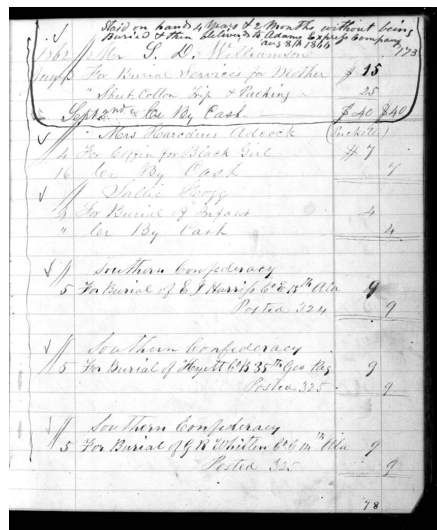 Staid on hands 4 Years & 2 Months without being
Buried & then delivered to Adams Express Company
Aug 8th 1866
173
1862 Mr S. D. Williamson
For Burial Services for Brother $ 15
" Sheet Cotton & Packing 25
Sept 2nd Cr By Cash $ 40 $40
Mrs Adcock
4 For Coffin for Black Girl $ 7
16 Cr By Cash 7
Sallie
4 For Burial of Infant 4
" Cr By Cash 4
Southern Confederacy
5 For Burial of E J Harris Co E 15th Ala 9
Posted 324 9
Southern Confederacy
5 For Burial of Hyett Co K 35th Geo Reg 9
Posted 325 9
Southern Confederacy
5 For Burial of G R Whitten Co C Ala 9
Posted 325 9
78